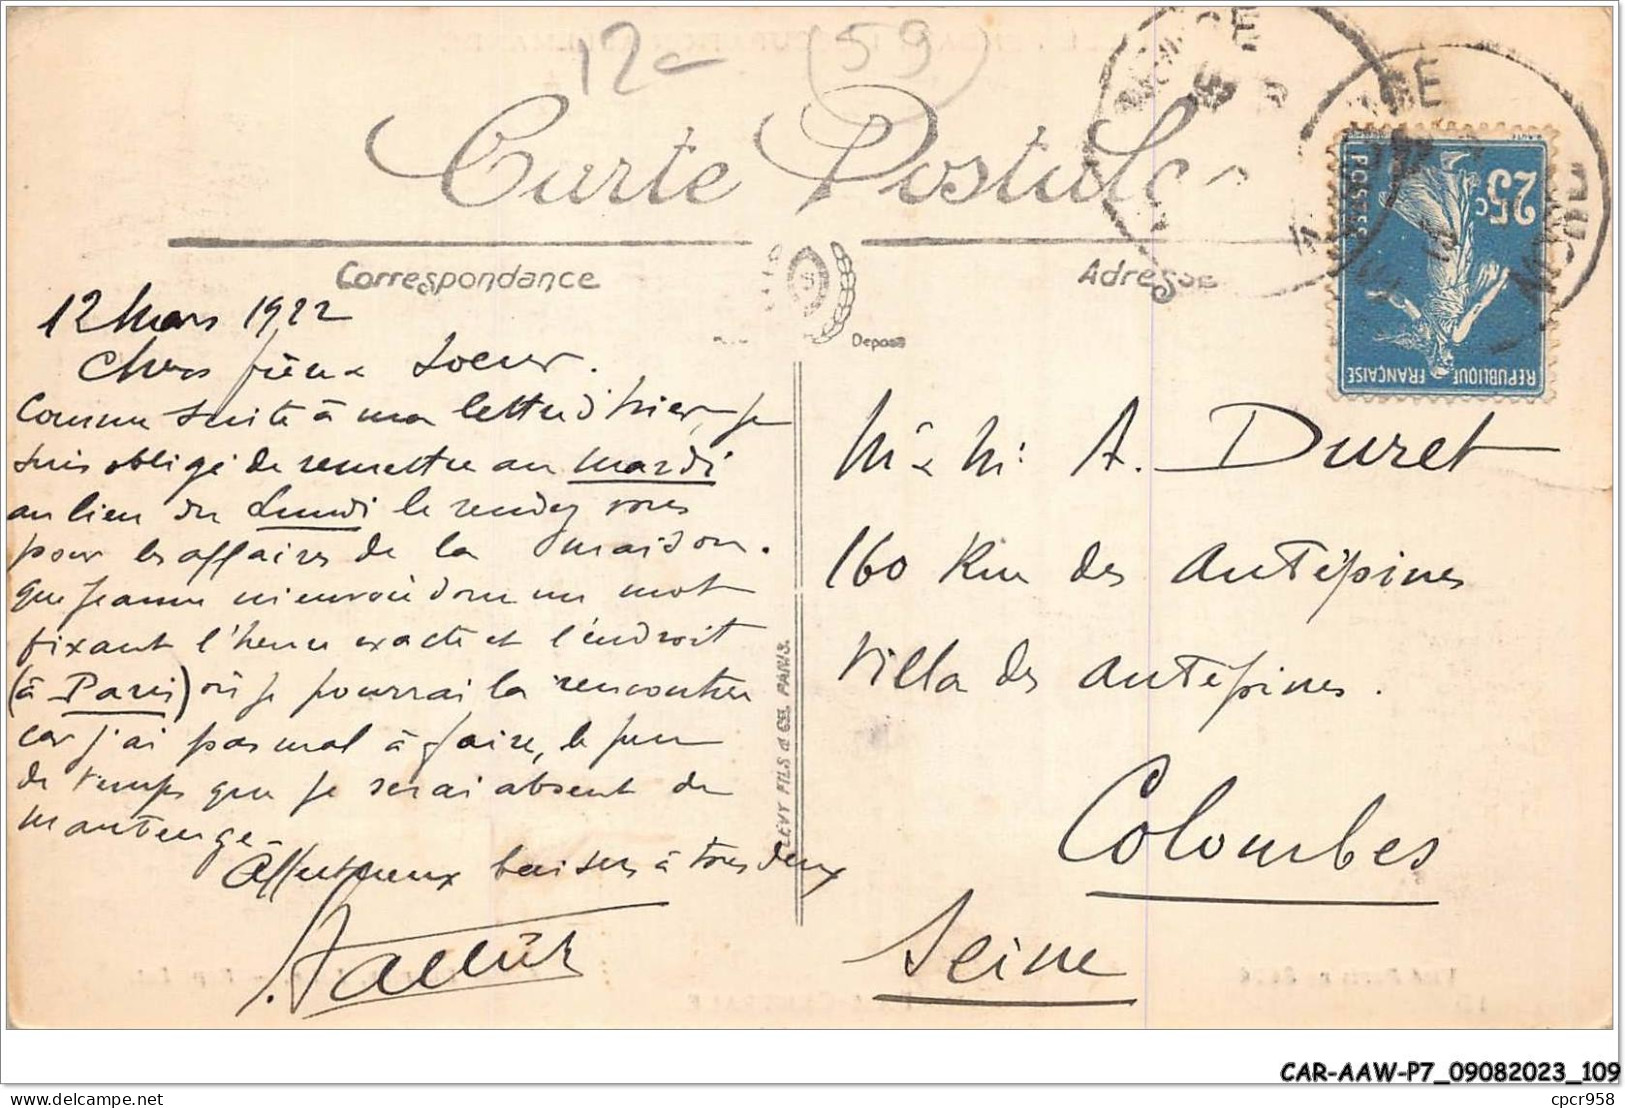 12 (59)
Carte Postale
Correspondance
Adresse
Déposé
12 Mars 1922
Chers frère & soeur.
Comme suite à ma lettre d'hier, je
suis obligé de remettre au mardi
au lieu du Lundi le rendez vous
pour les affaires de la maison.
que Jeanne m'envoie donc un mot
fixant l'heure exacte et l'endroit
(à Paris) où je pourrai la rencontrer
car j'ai pas mal à faire, le peu
de temps que je serai absent de
Maubeuge
Affectueux baisers à tous deux
LEVY FILS & Cie. PARIS.
Mr & Me A. Duret
160 Rue des Aubépines
Villa des Aubépines.
Colombes
Seine
25c
POSTES
REPUBLIQUE FRANÇAISE
CAR-AAW-P7_09082023_109
delcampe.net
cpcr958